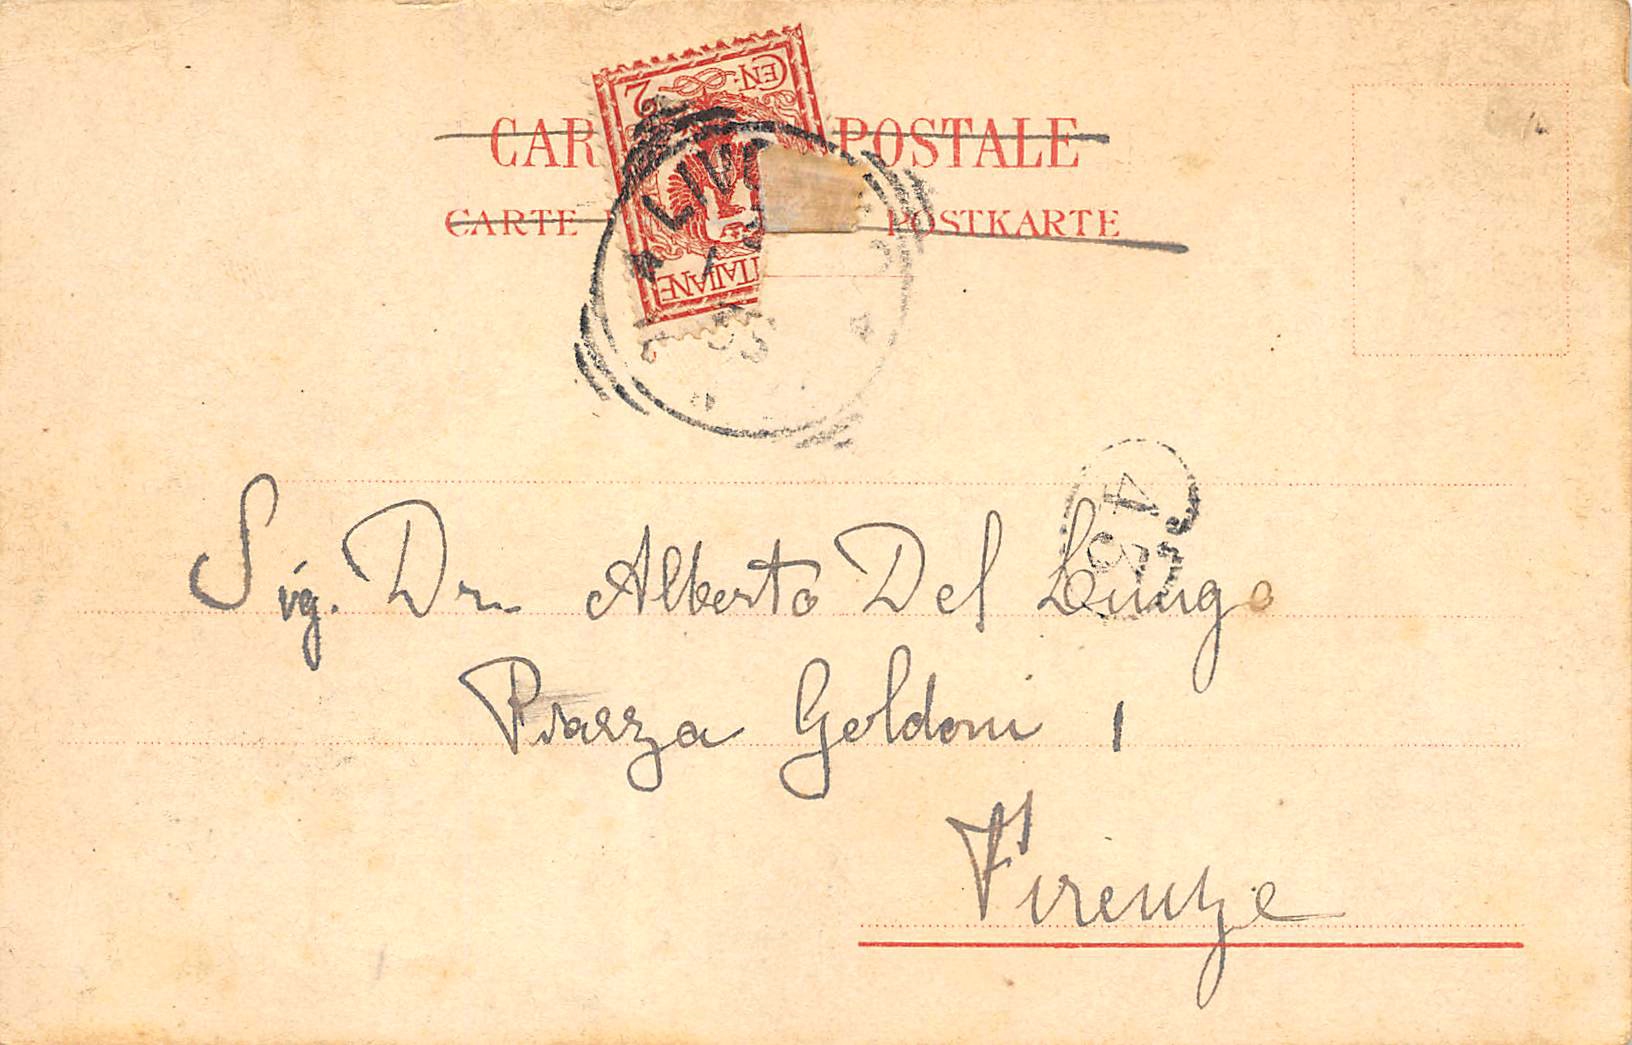 CEN. 2
ITALIANE
CAR POSTALE
LIVO
CARTE POSTKARTE
Sig. Dr. Alberto Del Lungo
Piazza Goldoni 1
Firenze